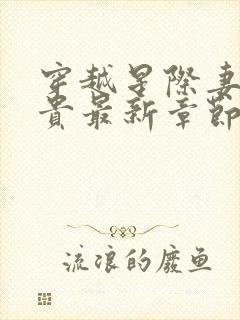 穿越星際妻
貴最新章節
流浪的廢魚